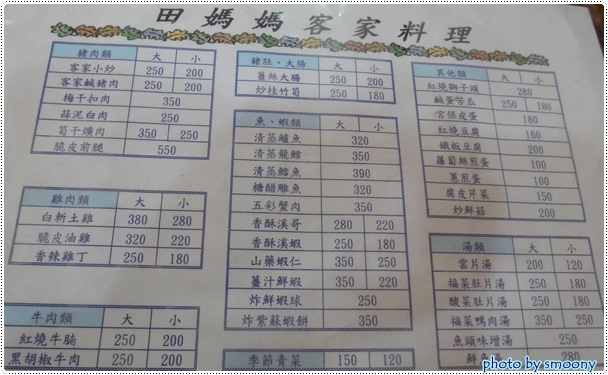 田媽媽客家料理
豬肉類 大 小
客家小炒 250 200
客家鹹豬肉 250 200
梅干扣肉 350
蒜泥白肉 250
筍干爌肉 350 250
脆皮前腿 550
雞肉類 大 小
白斬土雞 380 280
脆皮油雞 320 220
香辣雞丁 250 180
牛肉類 大 小
紅燒牛腩 250 200
黑胡椒牛肉 250 200
豬肚、大腸 大 小
薑絲大腸 250 200
炒桂竹筍 250 180
魚、蝦類 大 小
清蒸鱸魚 320
清蒸龍鱈 350
清蒸鱈魚 390
糖醋鵰魚 320
五彩蟹肉 350
香酥溪哥 280 220
香酥溪蝦 250 180
山藥蝦仁 350 250
薑汁鮮蝦 350 220
炸鮮蝦球 250
炸紫蘇蝦餅 350
季節青菜 150 120
其他類 大 小
紅燒獅子頭 280
鹹蛋苦瓜 250 180
宮保皮蛋 180
紅燒豆腐 160
鐵板豆腐 200
蘿蔔絲煎蛋 100
蔥煎蛋 100
腐皮芹菜 150
炒鮮菇 200
湯類 大 小
雲片湯 200 120
福菜肚片湯 250 180
酸菜肚片湯 250 180
福菜鴨肉湯 350 250
魚頭味增湯 250
鮮魚 280
photo by smoony